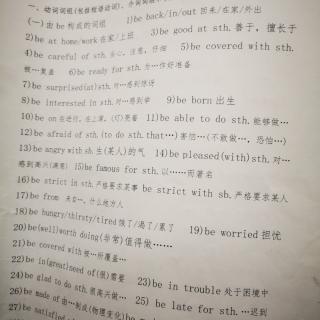 一、动词词组
(一)由be构成的词组 1)be back/in/out 回来/在家/外出
2)be at home/work 在家/上班 3)be good at sth. 善于,擅长于
4)be careful of sth. 当心,注意,仔细 5)be covered with sth.
被…复盖 6)be ready for sth. 为…作好准备
7)be surprised(at)sth. 对…感到惊讶
8)be interested in sth. 对…感到 9)be born 出生
10)be on 在进行,在上演,(灯)亮着 11)be able to do sth. 能够做…
12)be afraid of sth (to do sth. that…)害怕…(不敢做…,恐怕…)
13)be angry with sh. 生(某人)的气 14)be pleased(with)sth. 对…
感到高兴(满意) 15)be famous for sth. 以……而著名
16)be strict in sth. 严格要求某事 be strict with sh. 严格要求某人
17)be from 来自…,什么地方人
18)be hungry/thirsty/tired 饿了/渴了/累了 19)be worried 担忧
20)be(well)worth doing(非常)值得做……
21)be covered with 被…所覆盖…
22)be in(great)need of(很)需要 23)be in trouble 处于困境中
24)be glad to do sth. 很高兴做… 25) be late for sth. …迟到
26)be made of 由…制成(物理变化)be
27)be satisfied